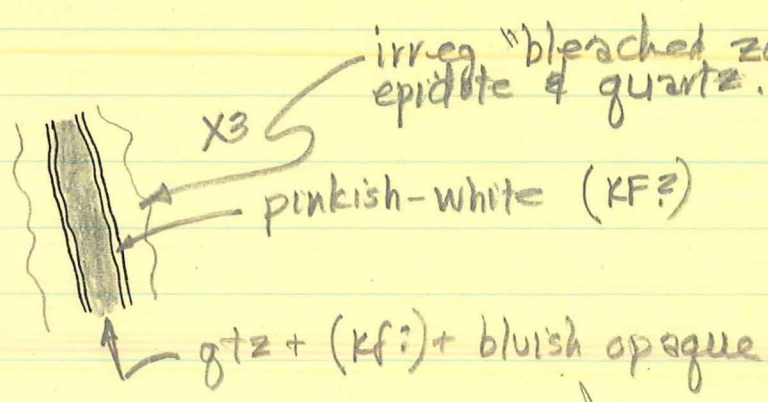 irreg "bleached
epidote & quartz.
X3
pinkish-white (KF?)
qtz + (Kf?) + bluish opaque